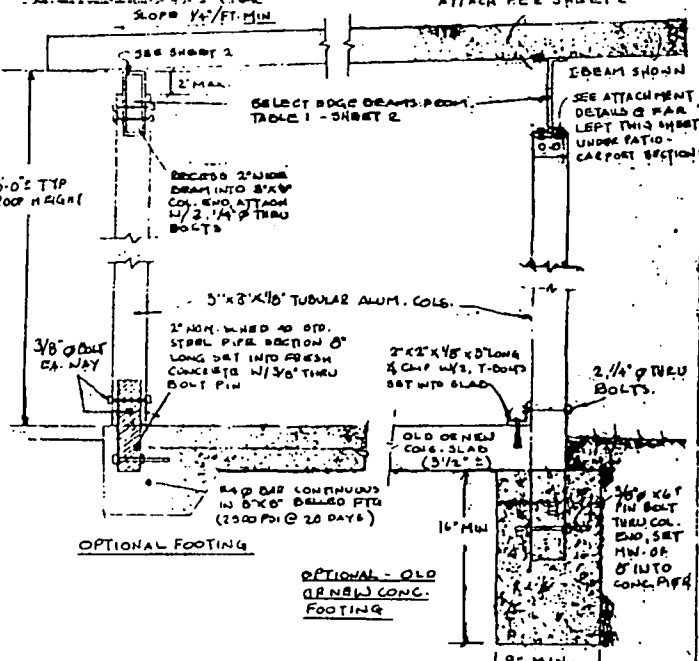 SLOPE 1/4"/FT. MIN
SEE SHEET 2
2" MAX
SELECT EDGE BEAMS FROM
TABLE 1 - SHEET 2
I-BEAM SHOWN
SEE ATTACHMENT
DETAILS @ FAR
LEFT THIS SHEET
UNDER PATIO-
CARPORT SECTION
TYP
HEIGHT
RECESS 2" WIDE
BEAM INTO 3"X3"
COL. END, ATTACH
W/ 2, 1/4" Ø THRU
BOLTS
3"X3"X1/8" TUBULAR ALUM. COLS.
3/8" Ø BOLT
EA. WAY
2" NOM. SCHED 40 STD.
STEEL PIPE SECTION 8"
LONG SET INTO FRESH
CONCRETE W/ 3/8" THRU
BOLT PIN
2"X2"X1/8"X3" LONG
CLIP W/2, T-BOLTS
SET INTO SLAB
2, 1/4" Ø THRU
BOLTS.
OLD OR NEW
CONC. SLAB
(3 1/2" ±)
#4 Ø BAR CONTINUOUS
IN 8"X8" BELLED FTG
(2500 PSI @ 28 DAYS)
16" MIN
3/8" Ø X 6"
PIN BOLT
THRU COL.
END, SET
MIN. OF
8" INTO
CONC. PIER
OPTIONAL FOOTING
OPTIONAL - OLD
OR NEW CONC.
FOOTING
MIN